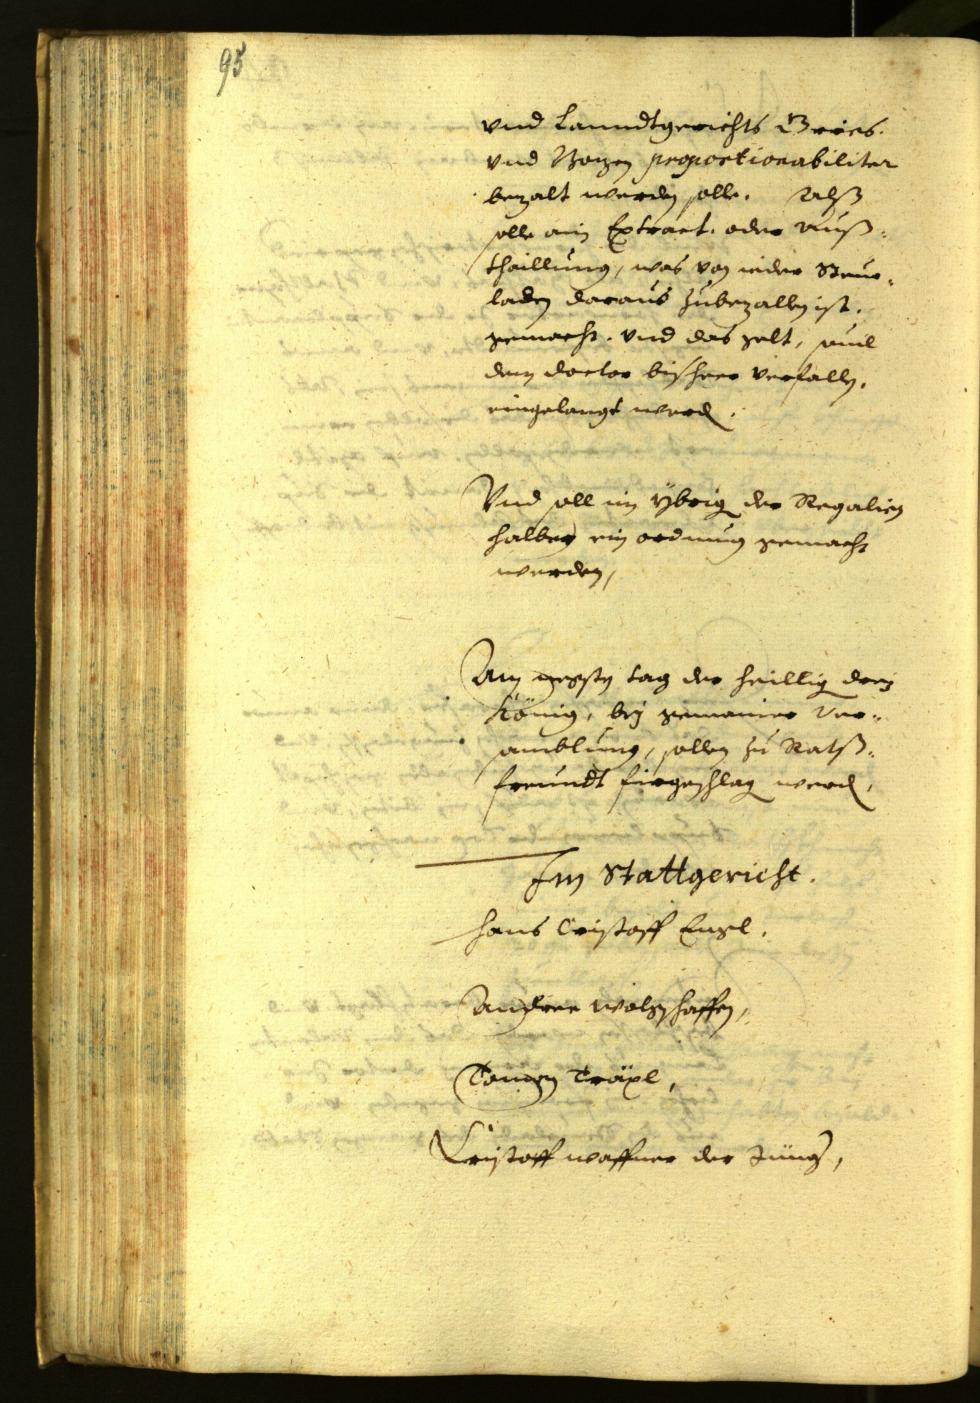 95
vnd Lanndtgerichts Gries.
vnd Bozen proportionabiliter
bezalt werden solle. Alß
solle ain Extract. oder Auß-
thaillung, was von ieder Steur-
laden daraus zubezallen ist.
gemacht. vnd das gelt, souil
dem doctor bißheer verfallen,
eingelangt werden.
Vnd soll im ÿbrig der Regalien
halben ein ordnung gemacht
werden,
Am tag der heillig dreÿ
König, beÿ gemainer Ver-
samblung, sollen zu Ratß-
freundt firgeschlag werden,
Im Stattgericht.
Hans Cristoff Engl.
Andree
Cristoff waffner der Jünger,